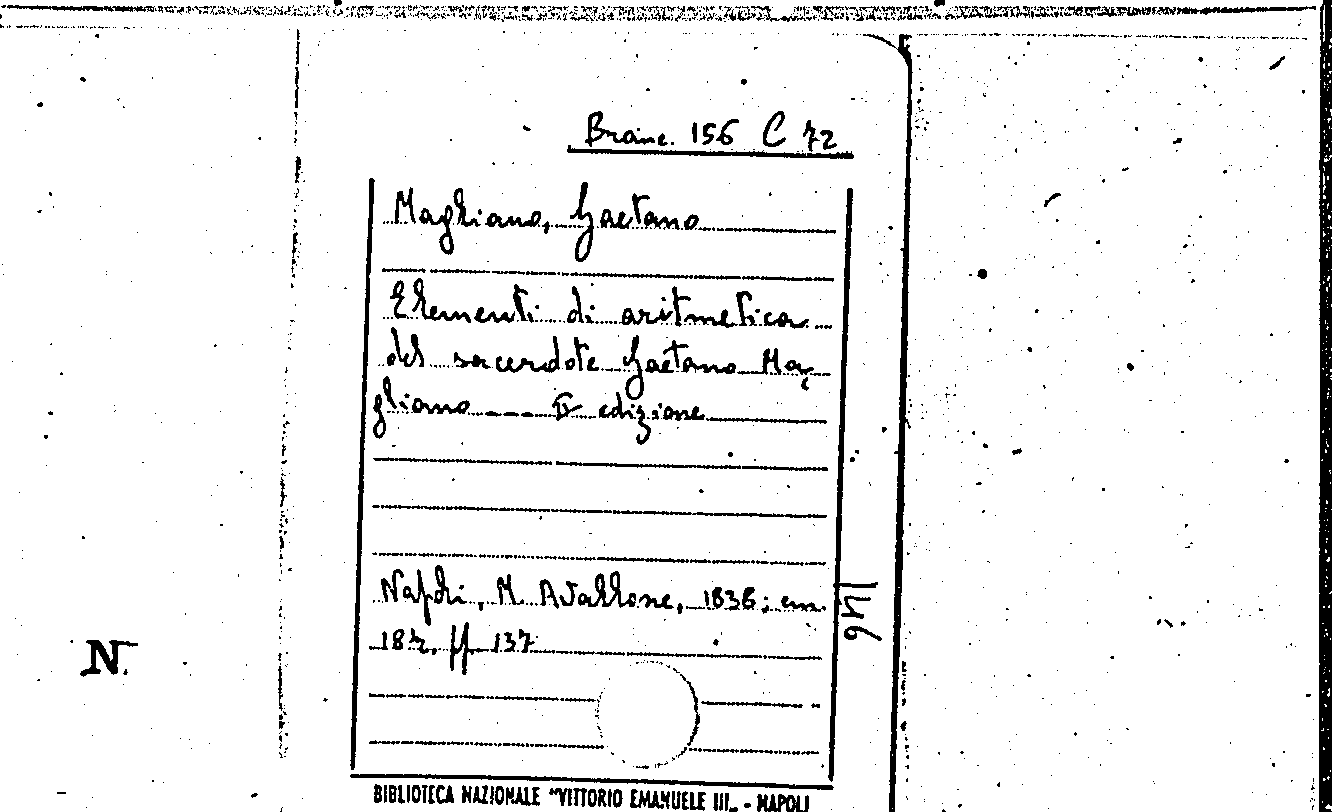 Branc. 156 C 72
Magliano, Gaetano
Elementi di aritmetica
del sacerdote Gaetano Ma
gliano --- IV edizione
Napoli, M. Avallone, 1838; cm.
18½, pp. 137
N.
BIBLIOTECA NAZIONALE "VITTORIO EMANUELE III„ - NAPOLI